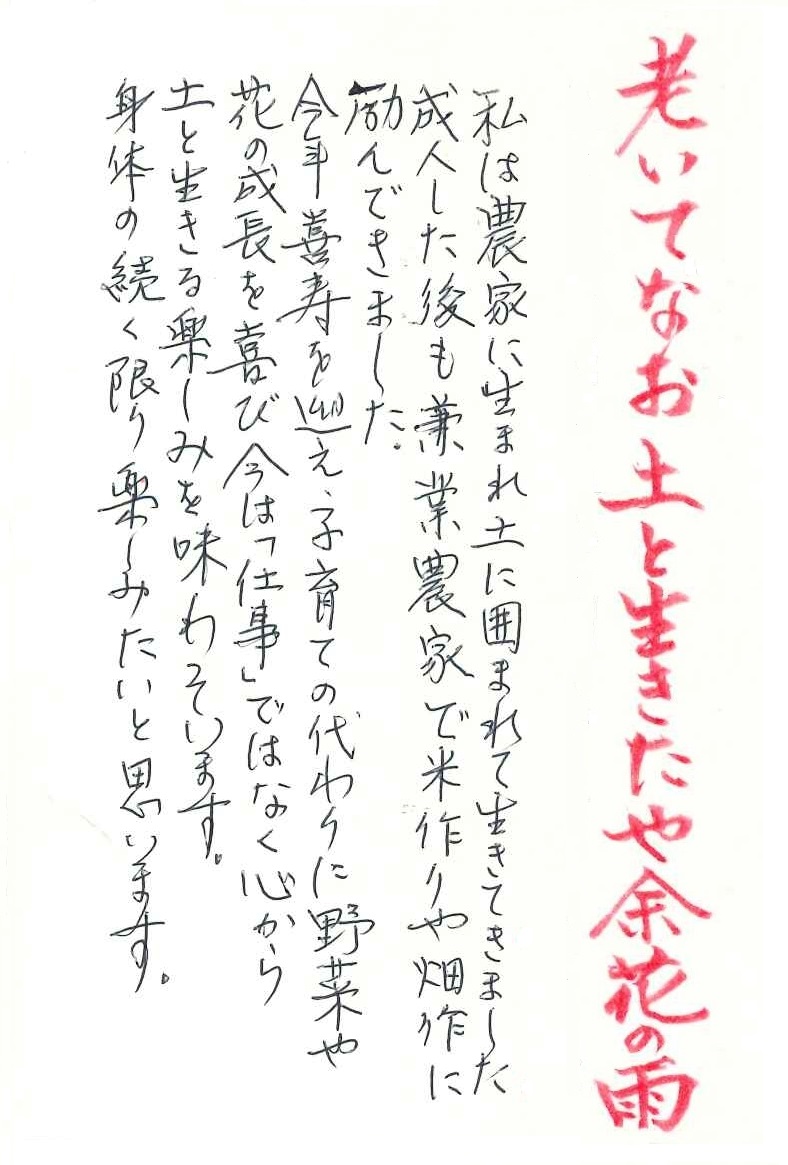 老いてなお土と生きたや余花の雨
私は農家に生まれ土に囲まれて生きてきました
成人した後も兼業農家で米作りや畑作に
励んできました。
今年喜寿を迎え、子育ての代わりに野菜や
花の成長を喜び今は「仕事」ではなく心から
土と生きる楽しみを味わっています。
身体の続く限り楽しみたいと思います。